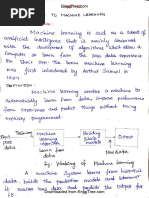 EnggTree.com
TO MACHINE LEARNING
Machine learning is said as a subset of
artificial intelligence that is mainly concerned
with the development of algorithms which allow a
computer to learn from the data, past experience
on their own. The term machine learning
was first introduced by Arthur Samuel in
1959.
DEFINITION:
Machine learning enables a machine to
automatically learn from data, improve performance
from experience and predict things without being
explicitly programmed.
Input
past
data
Training
Machine
learning
algorithm
Building
models
Output
learn from
data
New Data
Working of Machine Learning
A machine System learns from historical
data, builds the prediction models and whenever
it receives new data and predicts the output for
it.
Downloaded from EnggTree.com